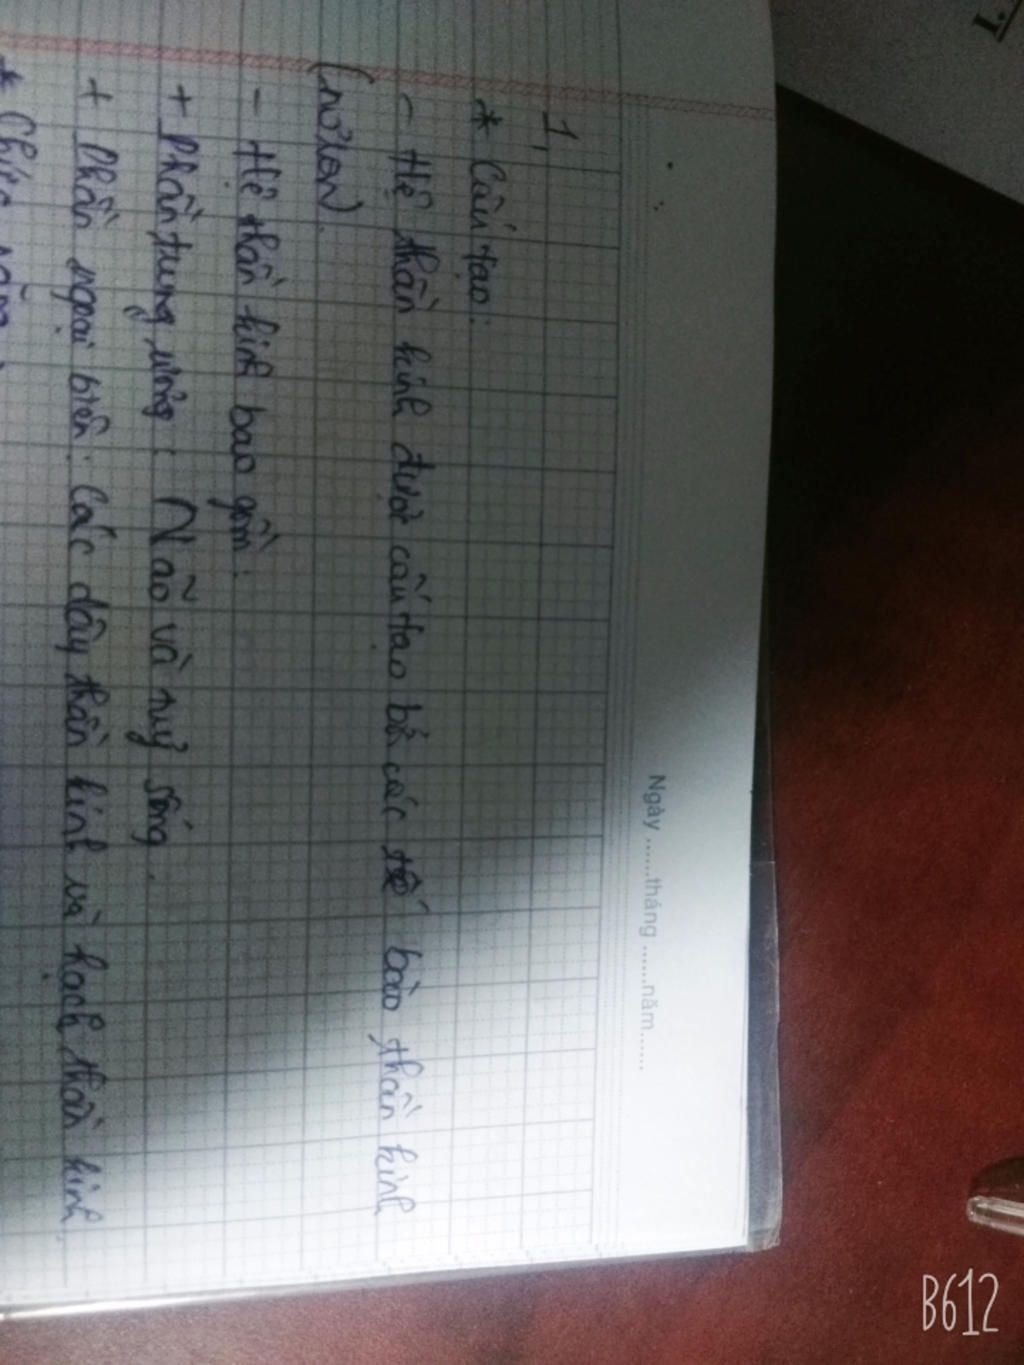 Ngày ......tháng ......năm......
1,
* Cấu tạo:
- Hệ thần kinh được cấu tạo bở các tế bào thần kinh
(nơron).
- Hệ thần kinh bao gồm:
+ Phần trung ương: Não và tuỷ sống.
+ Phần ngoại biên: Các dây thần kinh và hạch thần kinh.
* Chức năng
I.
B612